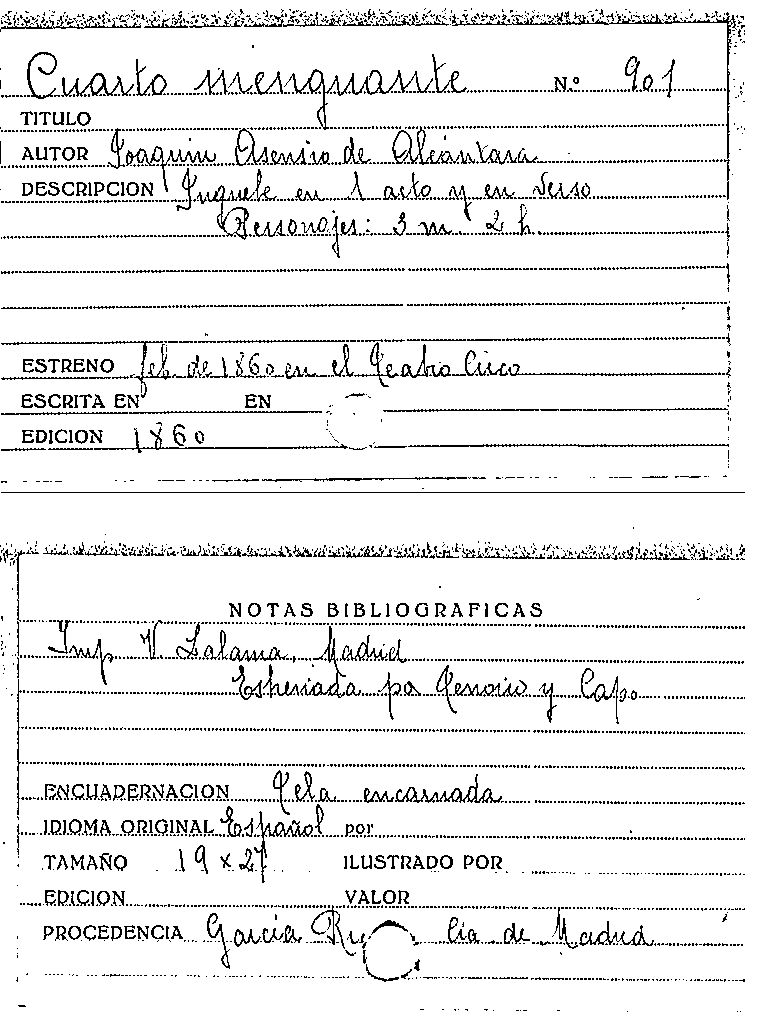 Cuarto menguante Nº 901
TITULO
AUTOR Joaquin Asensio de Alcántara
DESCRIPCION Juguete en 1 acto y en verso
Personajes: 3 m. 2 h.
ESTRENO feb. de 1860 en el Teatro Circo
ESCRITA EN EN
EDICION 1860
NOTAS BIBLIOGRAFICAS
Imp V. Lalama, Madrid
Estrenada por Tenorio y Capo
ENCUADERNACION Tela encarnada
IDIOMA ORIGINAL Español por
TAMAÑO 19 x 27 ILUSTRADO POR
EDICION VALOR
PROCEDENCIA García de Madrid